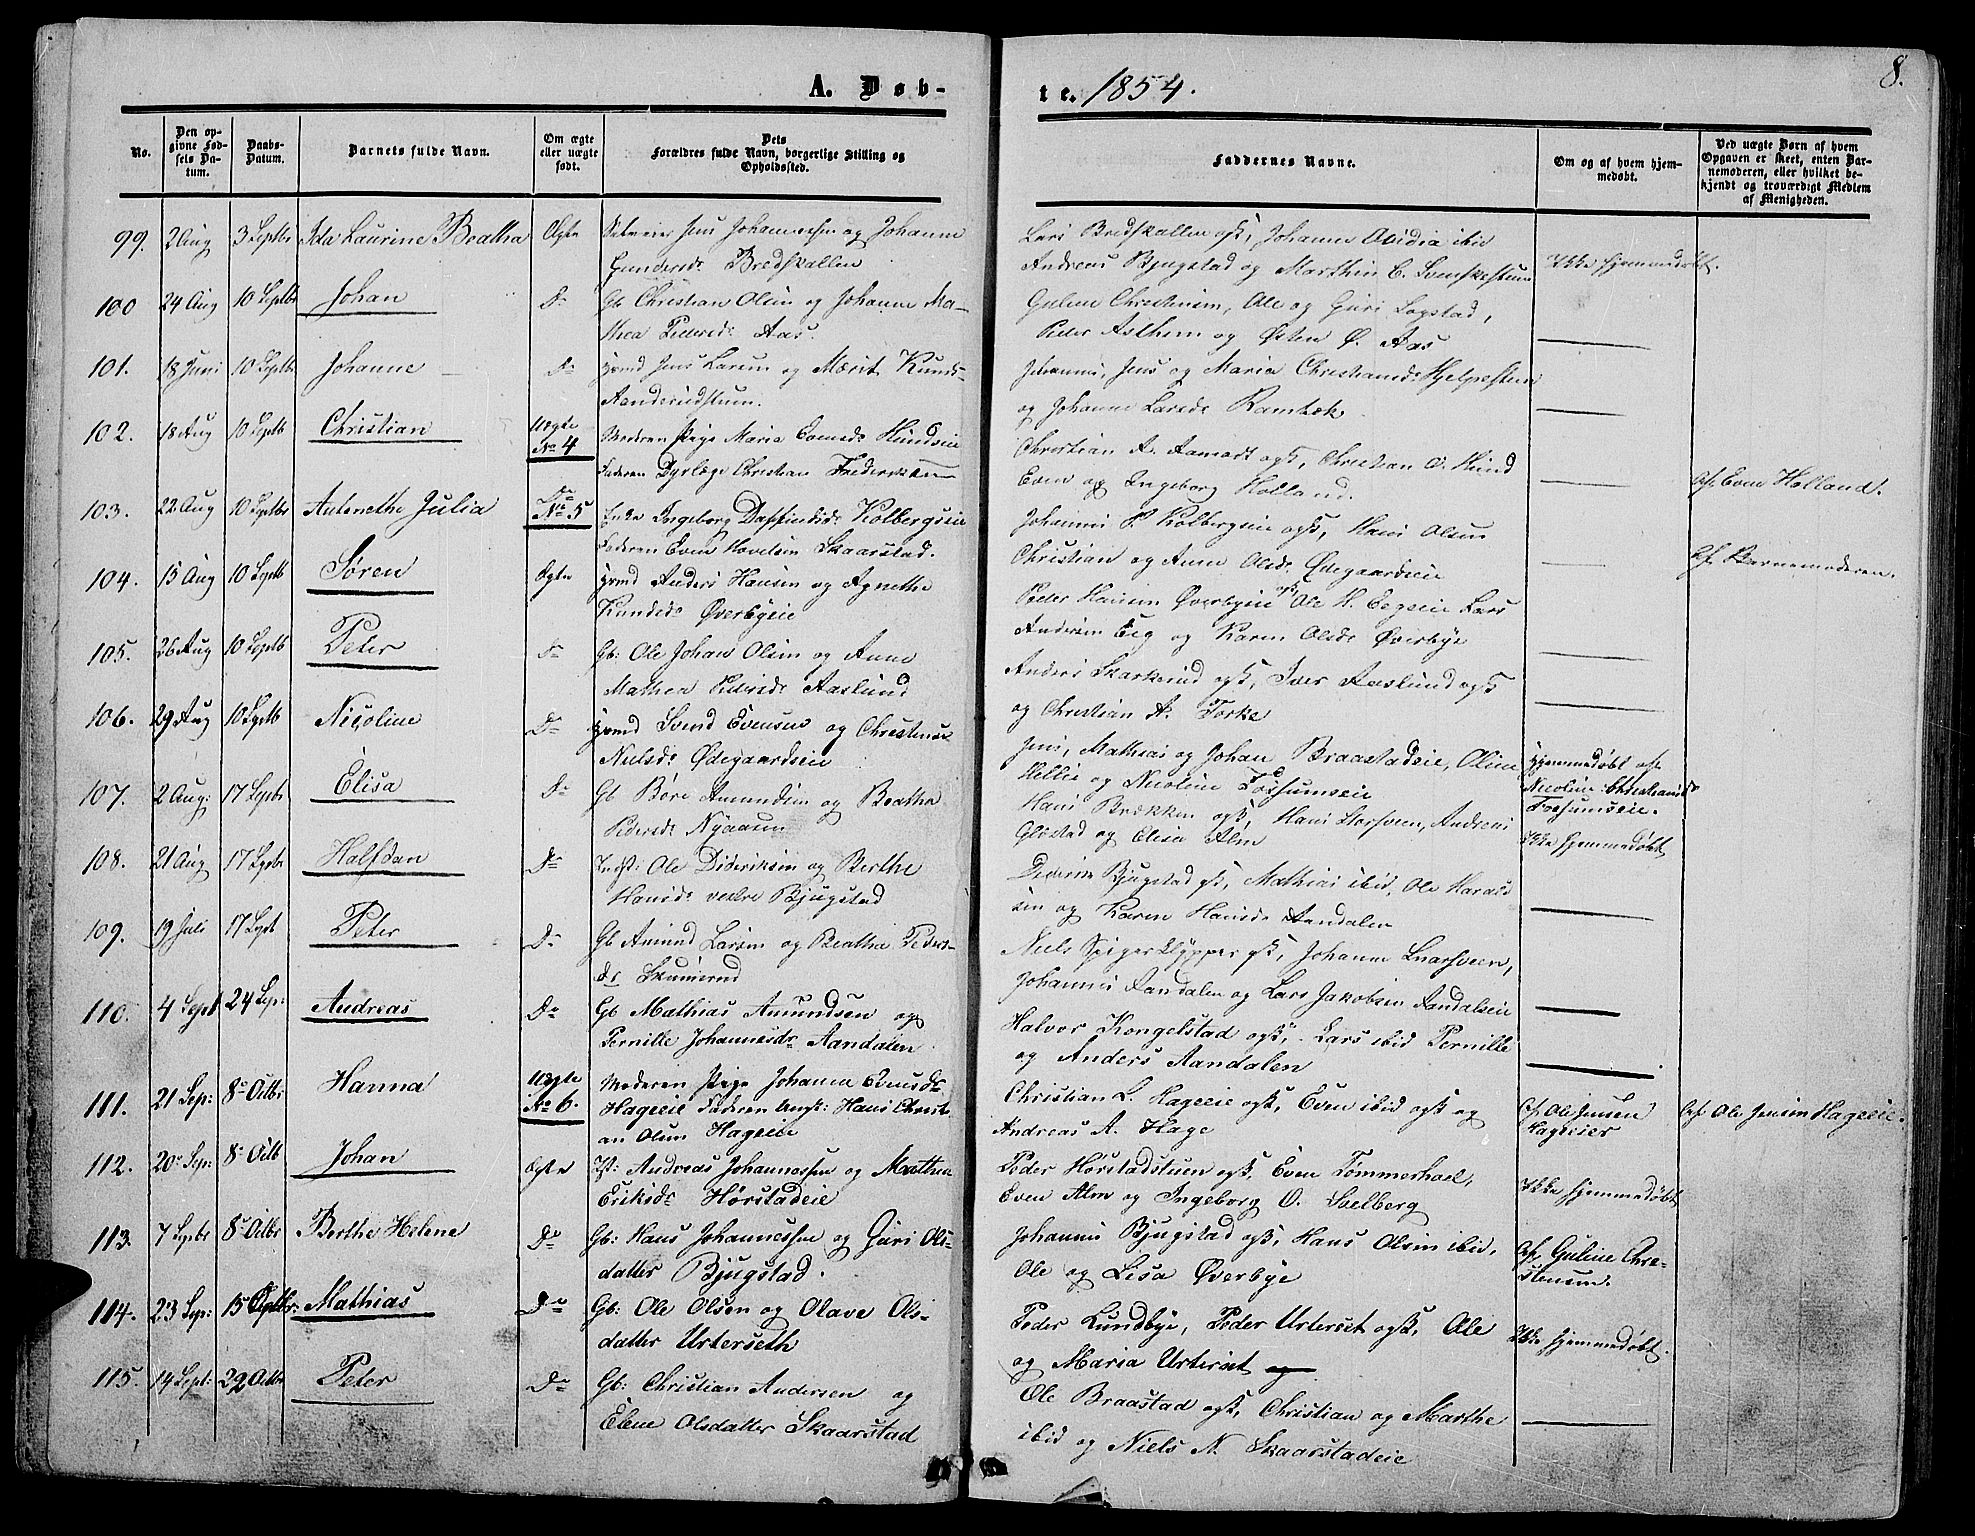 8.
A. Døb-
te. 1854.
No.
Den op-
givne Fød-
sels Da-
tum.
Daabs-
Datum.
Barnets fulde Navn.
Om ægte
eller uægte
født.
Dets
Forældres fulde Navn, borgerlige Stilling og
Opholdssted.
Faddernes Navne.
Om og af hvem hjem-
medøbt.
Ved uægte Børn af hvem
Opgaven er skeet, enten Bar-
nemoderen, eller hvilket be-
kjendt og troværdigt Medlem
af Menigheden.
99. 2 Aug 3 Septbr Ida Laurine Beatha Ægte Jens Johannessen og Johanne
Gundersd: Bredskallen
Lars Bredskallen ogsk, Johanne Ovidia ibid
Andreas Bjugstad og Marthin C. Svenskestuen
Ikke hjemmedøbt.
100 24 Aug 10 Septbr Johan Do Gb Christian Olsen og Johanne Ma-
thea Pedersd: Aas.
Guline Christensen, Ole og Guri Logstad,
Peder Asthem og Østen Ø. Aas
101. 18 Juni 10 Septbr Johanne Do Huusmd Jens Larsen og Marit Knuds-
Aanderudstuen.
Johannes, Jens og Maria Christiansd: Hjelpestuen
og Johanne Larsd: Rambæk
102. 18 Aug 10 Septb Christian Uægte
No 4
Moderen Pige Maria Evensd: Hundseie
Faderen Dyrlæge Christian Frederiksen
Christian A. Aamodt ogsk, Christian O. Hund
Even og Ingeborg Holland.
Af Even Holland.
103. 22 Aug 10 Septbr Antonethe Julia Do
No 5
Enke Ingeborg Dagfindsd: Kolbergseie
Faderen Even Hovelsen Skaarstad.
Johannes P. Kolbergseie ogsk, Hans Olsen
Christian og Anne Olsd: Ødegaardseie
Af Barnemoderen.
104. 15 Aug 10 Septb Søren Ægte Huusmd Anders Hansen og Agnethe
Knudsd: Øverbyeie
Peder Hansen Øverbyeie ogsk Ole H. Eegeeie Lars
Andersen Eeg og Karen Olsd: Øverbye
105. 26 Aug 10 Septb Peter Do Gb: Ole Johan Olsen og Anne
Mathea Pedersd: Aaslund
Anders Skarkerud ogsk, Iver Aaslund ogsk
og Christian A. Torke
106. 29 Aug 10 Septb Nicoline Do Huusmd Svend Evensen og Christense
Nielsd: Ødegaardseie
Jens, Mathias og Johan Braastadeie, Oline
Hellie og Nicoline Fossumseie
Hjemmedøbt af
Nicoline Christiansd:
Fossumseie.
107. 2 Aug: 17 Septbr Elisa Do Gb Børe Amundsen og Beatha
Pedersd: Nyaasen
Hans Brækken ogsk, Hans Korsveen, Andreas
Gløstad og Elise Alm
Ikke hjemmedøbt
108. 21 Aug 17 Septbr Halfdan Do Indst: Ole Dideriksen og Berthe
Hansd: vestre Bjugstad
Diderik Bjugstad gsk, Mathias ibid, Ole Harald-
sen og Karen Hansd: Aandalen
109. 19 Juli 17 Sept Peter Do Gb Amund Larsen og Beatha Peders-
dr Skumrud
Niels Spigerklypper gsk, Johanne Snarsveen,
Johannes Aandalen og Lars Jakobsen Aandalseie
110. 4 Sept 24 Sep: Andreas Do Gb Mathias Amundsen og
Pernille Johannesdr Aandalen
Halvor Kongelstad ogsk, Lars ibid Pernille
og Anders Aandalen
111. 21 Sep: 8 Octbr Hanna Uægte
No 6.
Moderen Pige Johanna Evensdr
Hageeie Faderen Ungk: Hans Christi-
an Olsen Hageeie
Christian L. Hageeie ogsk, Even ibid ogsk og
Andreas A. Hage
Af Ole Jensen
Hageeier
Af Ole Jensen Hageeie.
112. 20 Sep: 8 Octb Johan Ægte Ist: Andreas Johannessen og Mathea
Eriksdr Hørstadeie
Peder Hørstadstuen ogsk, Even Tømmerhoel,
Even Alm og Ingeborg O. Sælberg
Ikke hjemmedøbt
113. 7 Septbr 8 Octbr Berthe Helene Do Gb: Hans Johannessen og Guri Ols-
datter Bjugstad.
Johannes Bjugstad ogsk, Hans Olsen ibid,
Ole og Lisa Øverbye
Af Guline Chri-
stensen.
114. 23 Sep: 15 Octbr: Mathias Do Gb: Ole Olsen og Olave Ols-
datter Urterseth
Peder Lundbye, Peder Urterset ogsk, Ole
og Maria Urterset og
Ikke hjemmedøbt.
115. 14 Sept: 22 Octbr Peter Do Gb: Christian Andersen og
Eline Olsdatter Skaarstad
Ole Braastad ogsk, Christian og Marthe
ibid og Niels N. Skaarstadeie